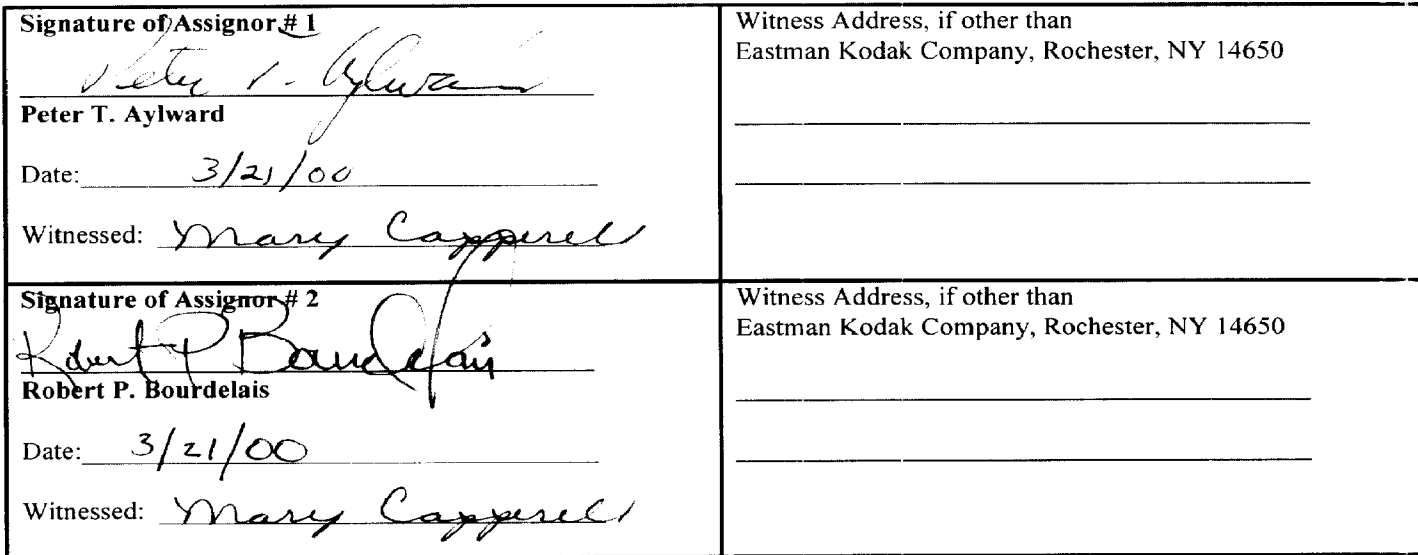 Signature of Assignor # 1
Peter T. Aylward
Peter T. Aylward
Date: 3/21/00
Witnessed: Mary Capperell
Witness Address, if other than
Eastman Kodak Company, Rochester, NY 14650
Signature of Assignor # 2
Robert P Bourdelais
Robert P. Bourdelais
Date: 3/21/00
Witnessed: Mary Capperell
Witness Address, if other than
Eastman Kodak Company, Rochester, NY 14650